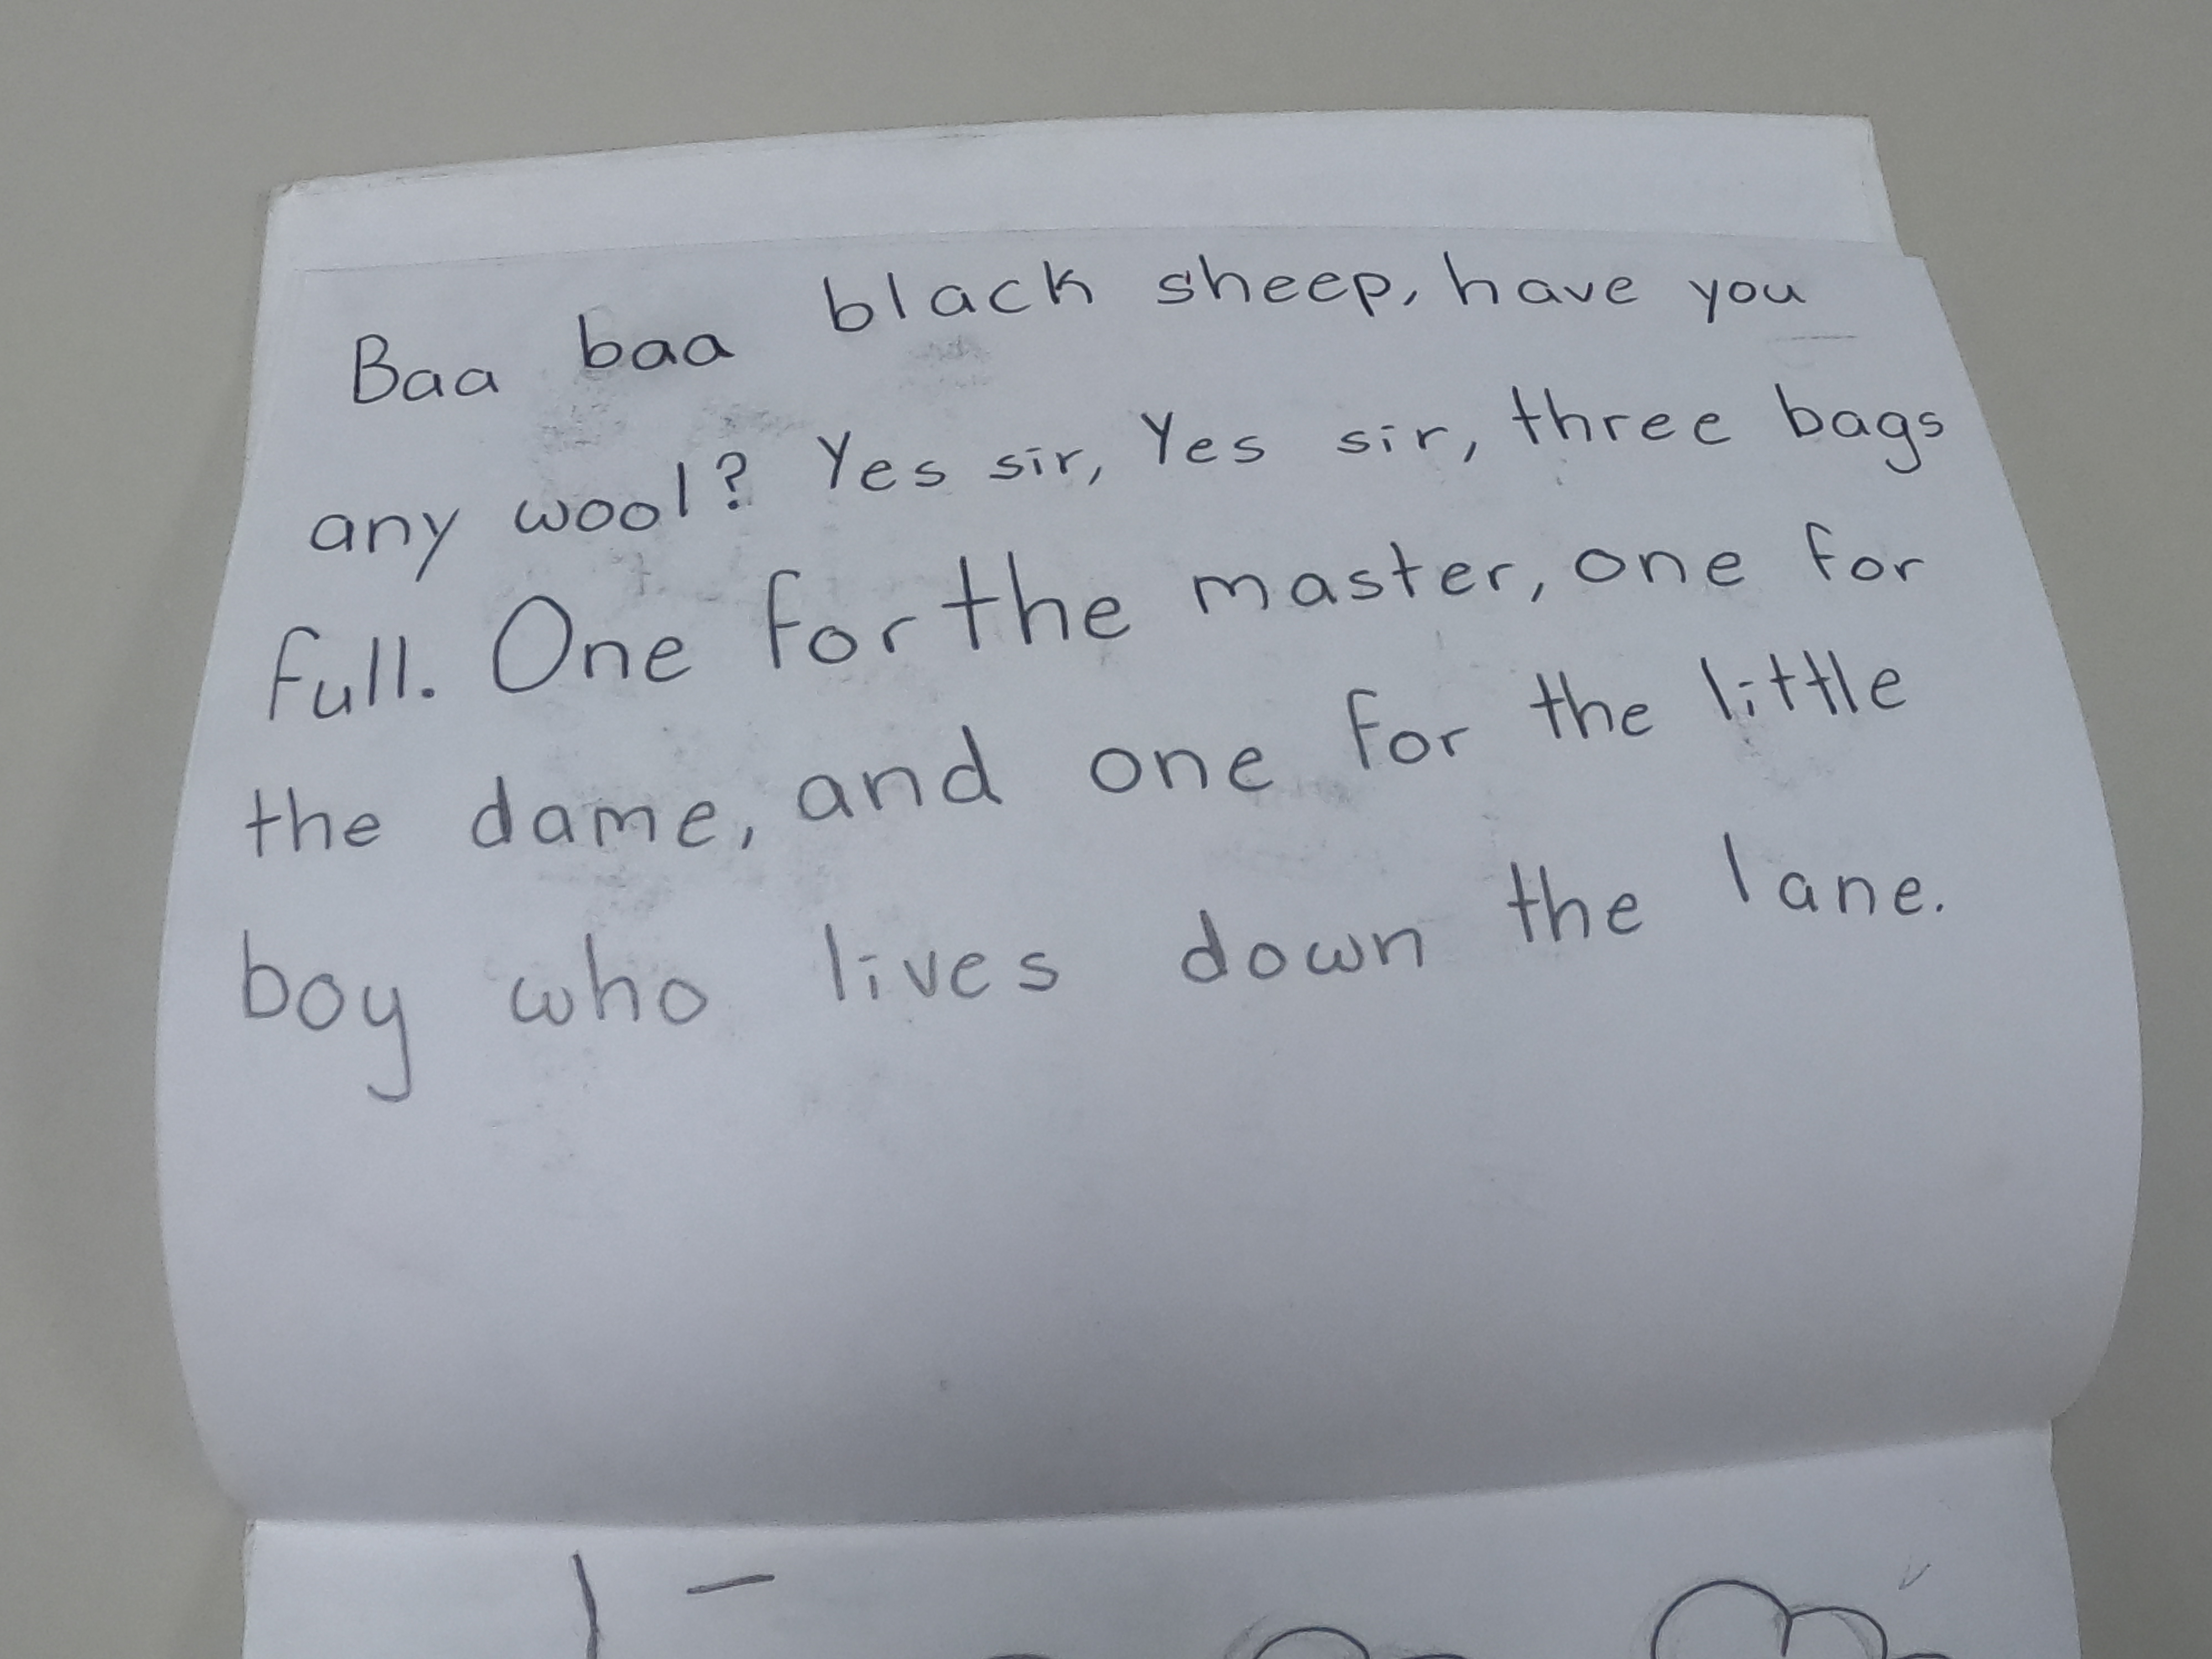 Baa baa black sheep, have you
any wool? Yes sir, Yes sir, three bags
full. One for the master, one for
the dame, and one for the little
boy who lives down the lane.